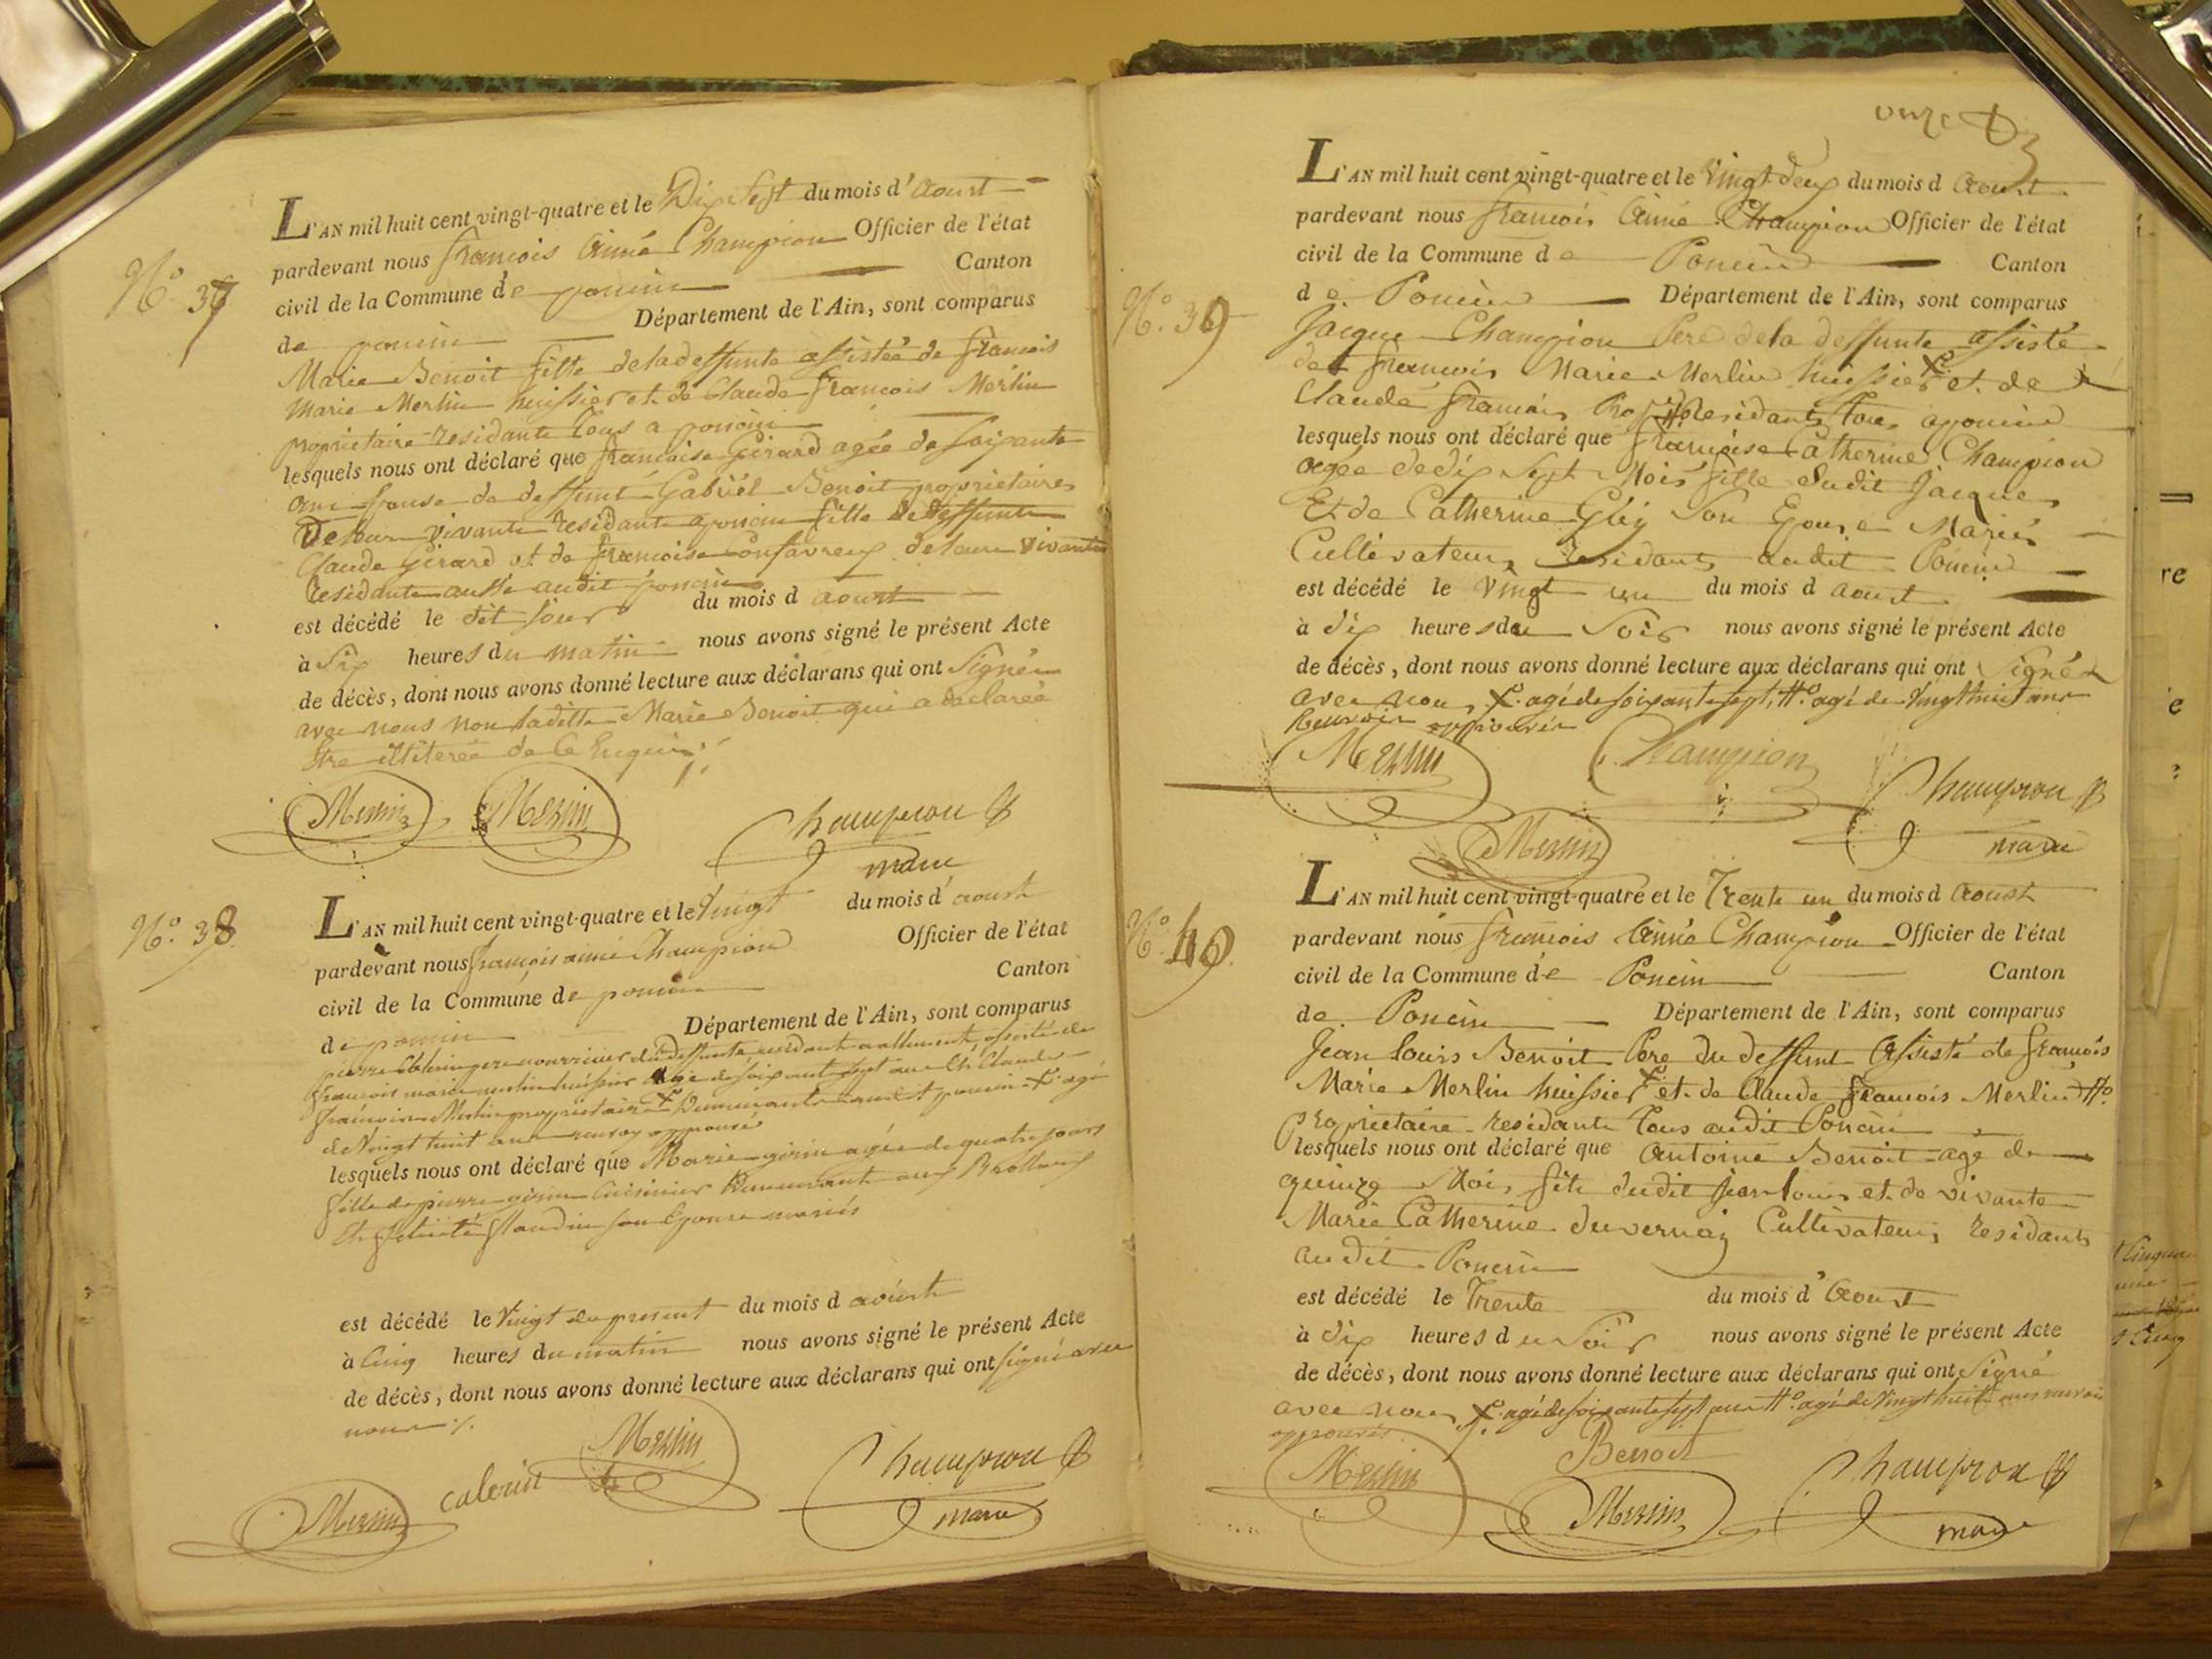 N.o 37
L'AN mil huit cent vingt-quatre et le Dix Sept du mois d'Aoust
pardevant nous françois Aimé Champion Officier de l'état
civil de la Commune de poncin Canton
de poncin Département de l'Ain, sont comparus
Marie Benoit fille de la deffunte assistée de françois
Marie Merlin huissier et de Claude françois Merlin
proprietaire residants tous a poncin
lesquels nous ont déclaré que françoise Girard agée de soixante
ans Epouse de deffunt Gabriel Benoit proprietaires
De leur vivants residants a poncin fille de deffunts
Claude Girard et de françoise Confavreux de leur vivants
residants aussi audit poncin
est décédé le dit jour du mois d aoust
à Six heures du matin nous avons signé le présent Acte
de décès, dont nous avons donné lecture aux déclarans qui ont Signés
avec nous non laditte Marie Benoit qui a declarée
Etre illiterée de ce Enquis
Merlin Merlin Champion
maire
N.o 38
L'AN mil huit cent vingt-quatre et le Vingt du mois d'aoust
pardevant nous françois aimé Champion Officier de l'état
civil de la Commune de poncin Canton
de poncin Département de l'Ain, sont comparus
pierre pere nourricier de la deffunte residant assisté de
françois marie merlin huissier agé de soixante sept ans et Claude
françois Merlin proprietaire demeurants audit poncin agé
de Vingt huit ans renvoy approuvé
lesquels nous ont déclaré que Marie girin agée de quatre jours
fille de pierre girin Cuisinier Demeurant aux Brotteaux
Et son Epouse mariés
est décédé le Vingt du present du mois d aoust
à Cinq heures du matin nous avons signé le présent Acte
de décès, dont nous avons donné lecture aux déclarans qui ont signé avec
nous
Merlin calerin Merlin Champion
maire
onze
L'AN mil huit cent vingt-quatre et le Vingt Deux du mois d Aoust
pardevant nous françois Aimé Champion Officier de l'état
civil de la Commune de Poncin Canton
N.o 39
de Poncin Département de l'Ain, sont comparus
Jacque Champion Pere de la deffunte assisté
de françois Marie Merlin huissier et de
Claude françois residants tous a poncin
lesquels nous ont déclaré que françoise Catherine Champion
agée de dix Sept Mois fille dudit Jacque
Et de Catherine Son Epouse Mariés
Cultivateurs residants audit Poncin
est décédé le Vingt un du mois d aoust
à dix heures du Soir nous avons signé le présent Acte
de décès, dont nous avons donné lecture aux déclarans qui ont Signés
avec nous agé de soixante sept, agé de Vingt huit ans
Renvoir approuvés
Merlin Champion Champion
Merlin maire
L'AN mil huit cent vingt-quatre et le Trente un du mois d Aoust
pardevant nous françois Aimé Champion Officier de l'état
N.o 40
civil de la Commune de Poncin Canton
de Poncin Département de l'Ain, sont comparus
Jean Louis Benoit Pere du deffunt Assisté de françois
Marie Merlin huissier et de Claude françois Merlin
proprietaire residants Tous audit Poncin
lesquels nous ont déclaré que Antoine Benoit agé de
quinze Mois fils dudit Jean Louis et de vivante
Marie Catherine Duvernay Cultivateurs residants
audit Poncin
est décédé le Trente du mois d'Aoust
à dix heures du Soir nous avons signé le présent Acte
de décès, dont nous avons donné lecture aux déclarans qui ont Signé
avec nous agé de soixante sept ans agé de Vingt huit ans renvoir
approuvés
Merlin Benoit Champion
Merlin maire